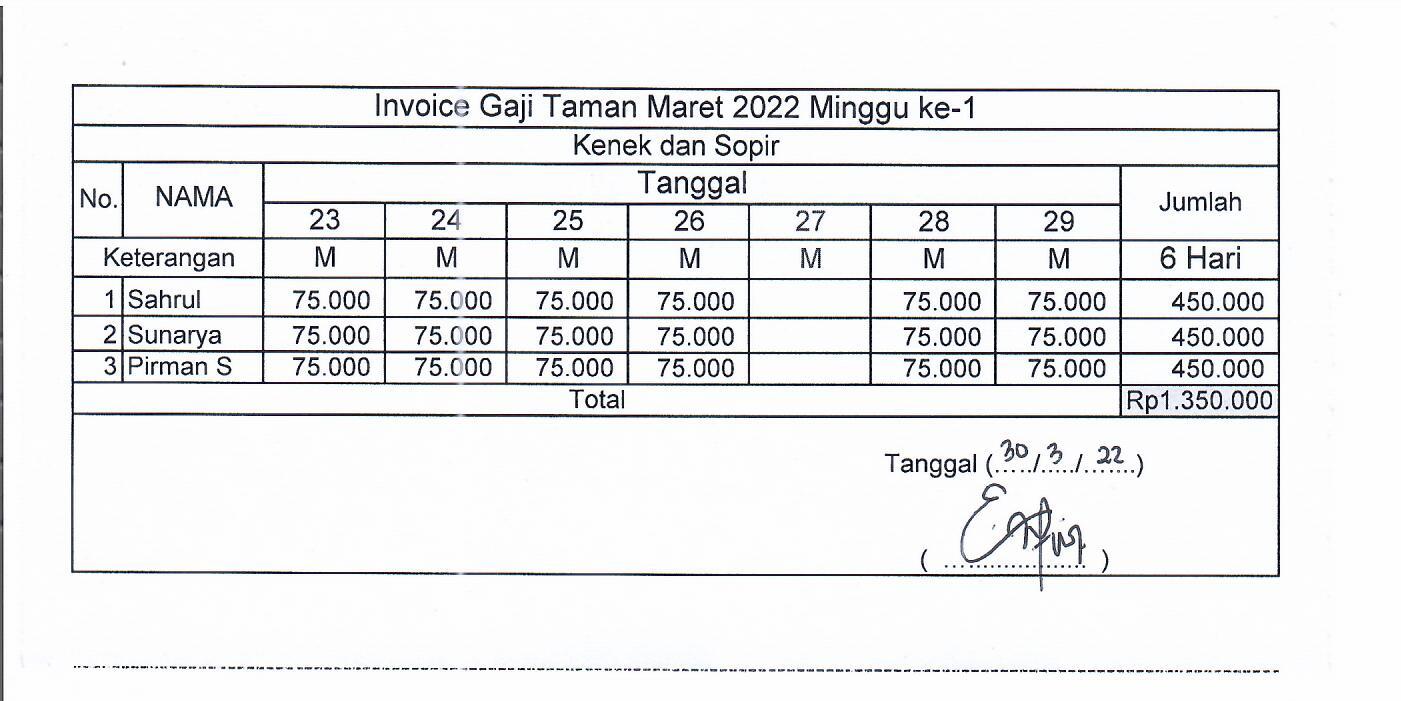 Invoice Gaji Taman Maret 2022 Minggu ke-1
Kenek dan Sopir
No. NAMA Tanggal Jumlah
23 24 25 26 27 28 29
Keterangan M M M M M M M 6 Hari
1 Sahrul 75.000 75.000 75.000 75.000 75.000 75.000 450.000
2 Sunarya 75.000 75.000 75.000 75.000 75.000 75.000 450.000
3 Pirman S 75.000 75.000 75.000 75.000 75.000 75.000 450.000
Total Rp1.350.000
Tanggal (30/3/22)